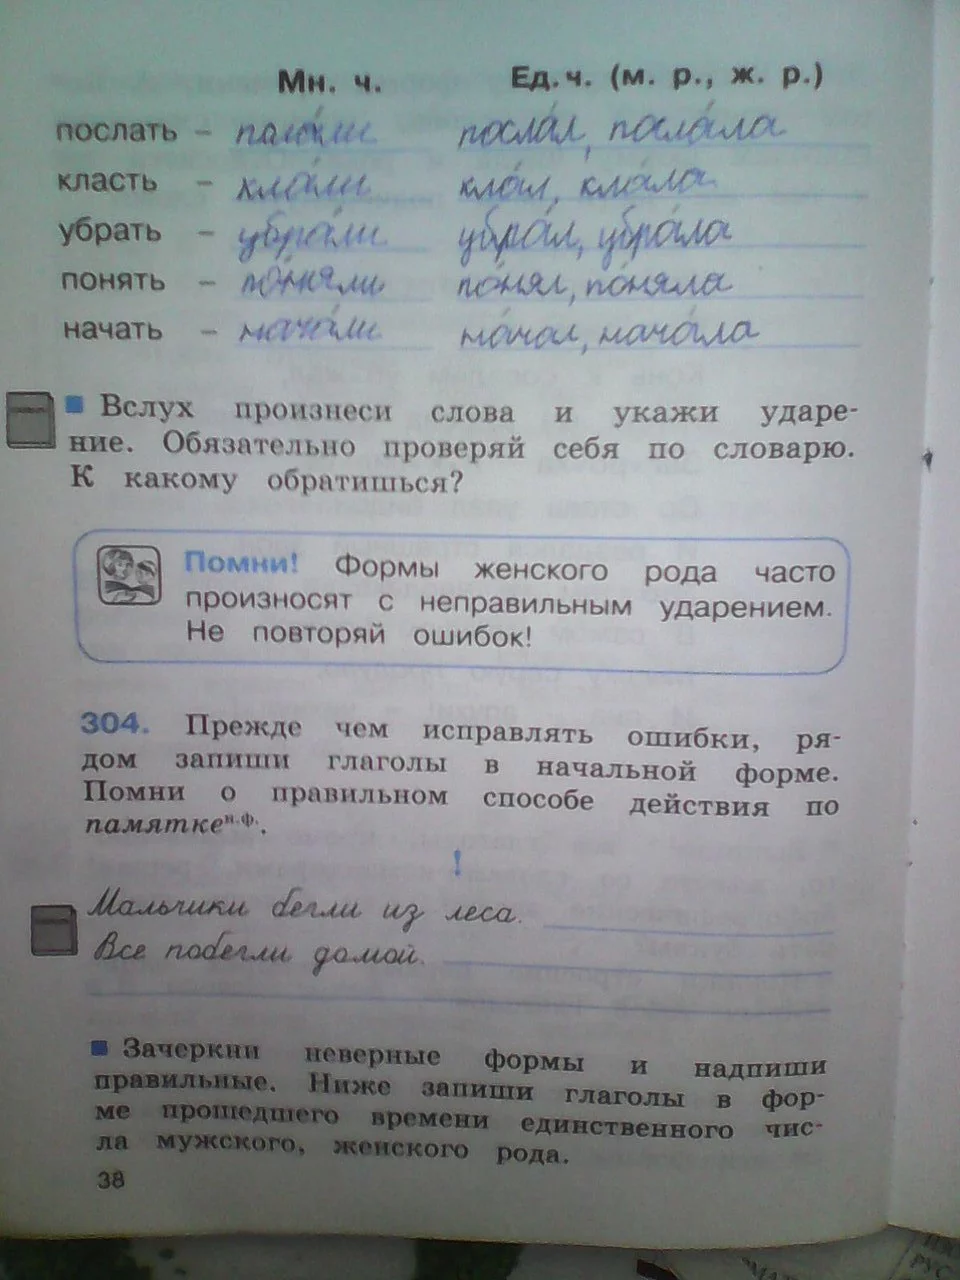 Мн. ч. Ед. ч. (м. р., ж. р.)
послать – посла́ли посла́л, посла́ла
класть – кла́ли кла́л, кла́ла
убрать – убра́ли убра́л, убра́ла
понять – по́няли по́нял, по́няла
начать – нача́ли на́чал, нача́ла
Вслух произнеси слова и укажи ударе-
ние. Обязательно проверяй себя по словарю.
К какому обратишься?
Помни! Формы женского рода часто
произносят с неправильным ударением.
Не повторяй ошибок!
304. Прежде чем исправлять ошибки, ря-
дом запиши глаголы в начальной форме.
Помни о правильном способе действия по
памятке н.ф.
!
Мальчики бегли из леса.
Все побегли домой.
Зачеркни неверные формы и надпиши
правильные. Ниже запиши глаголы в фор-
ме прошедшего времени единственного чис-
ла мужского, женского рода.
38